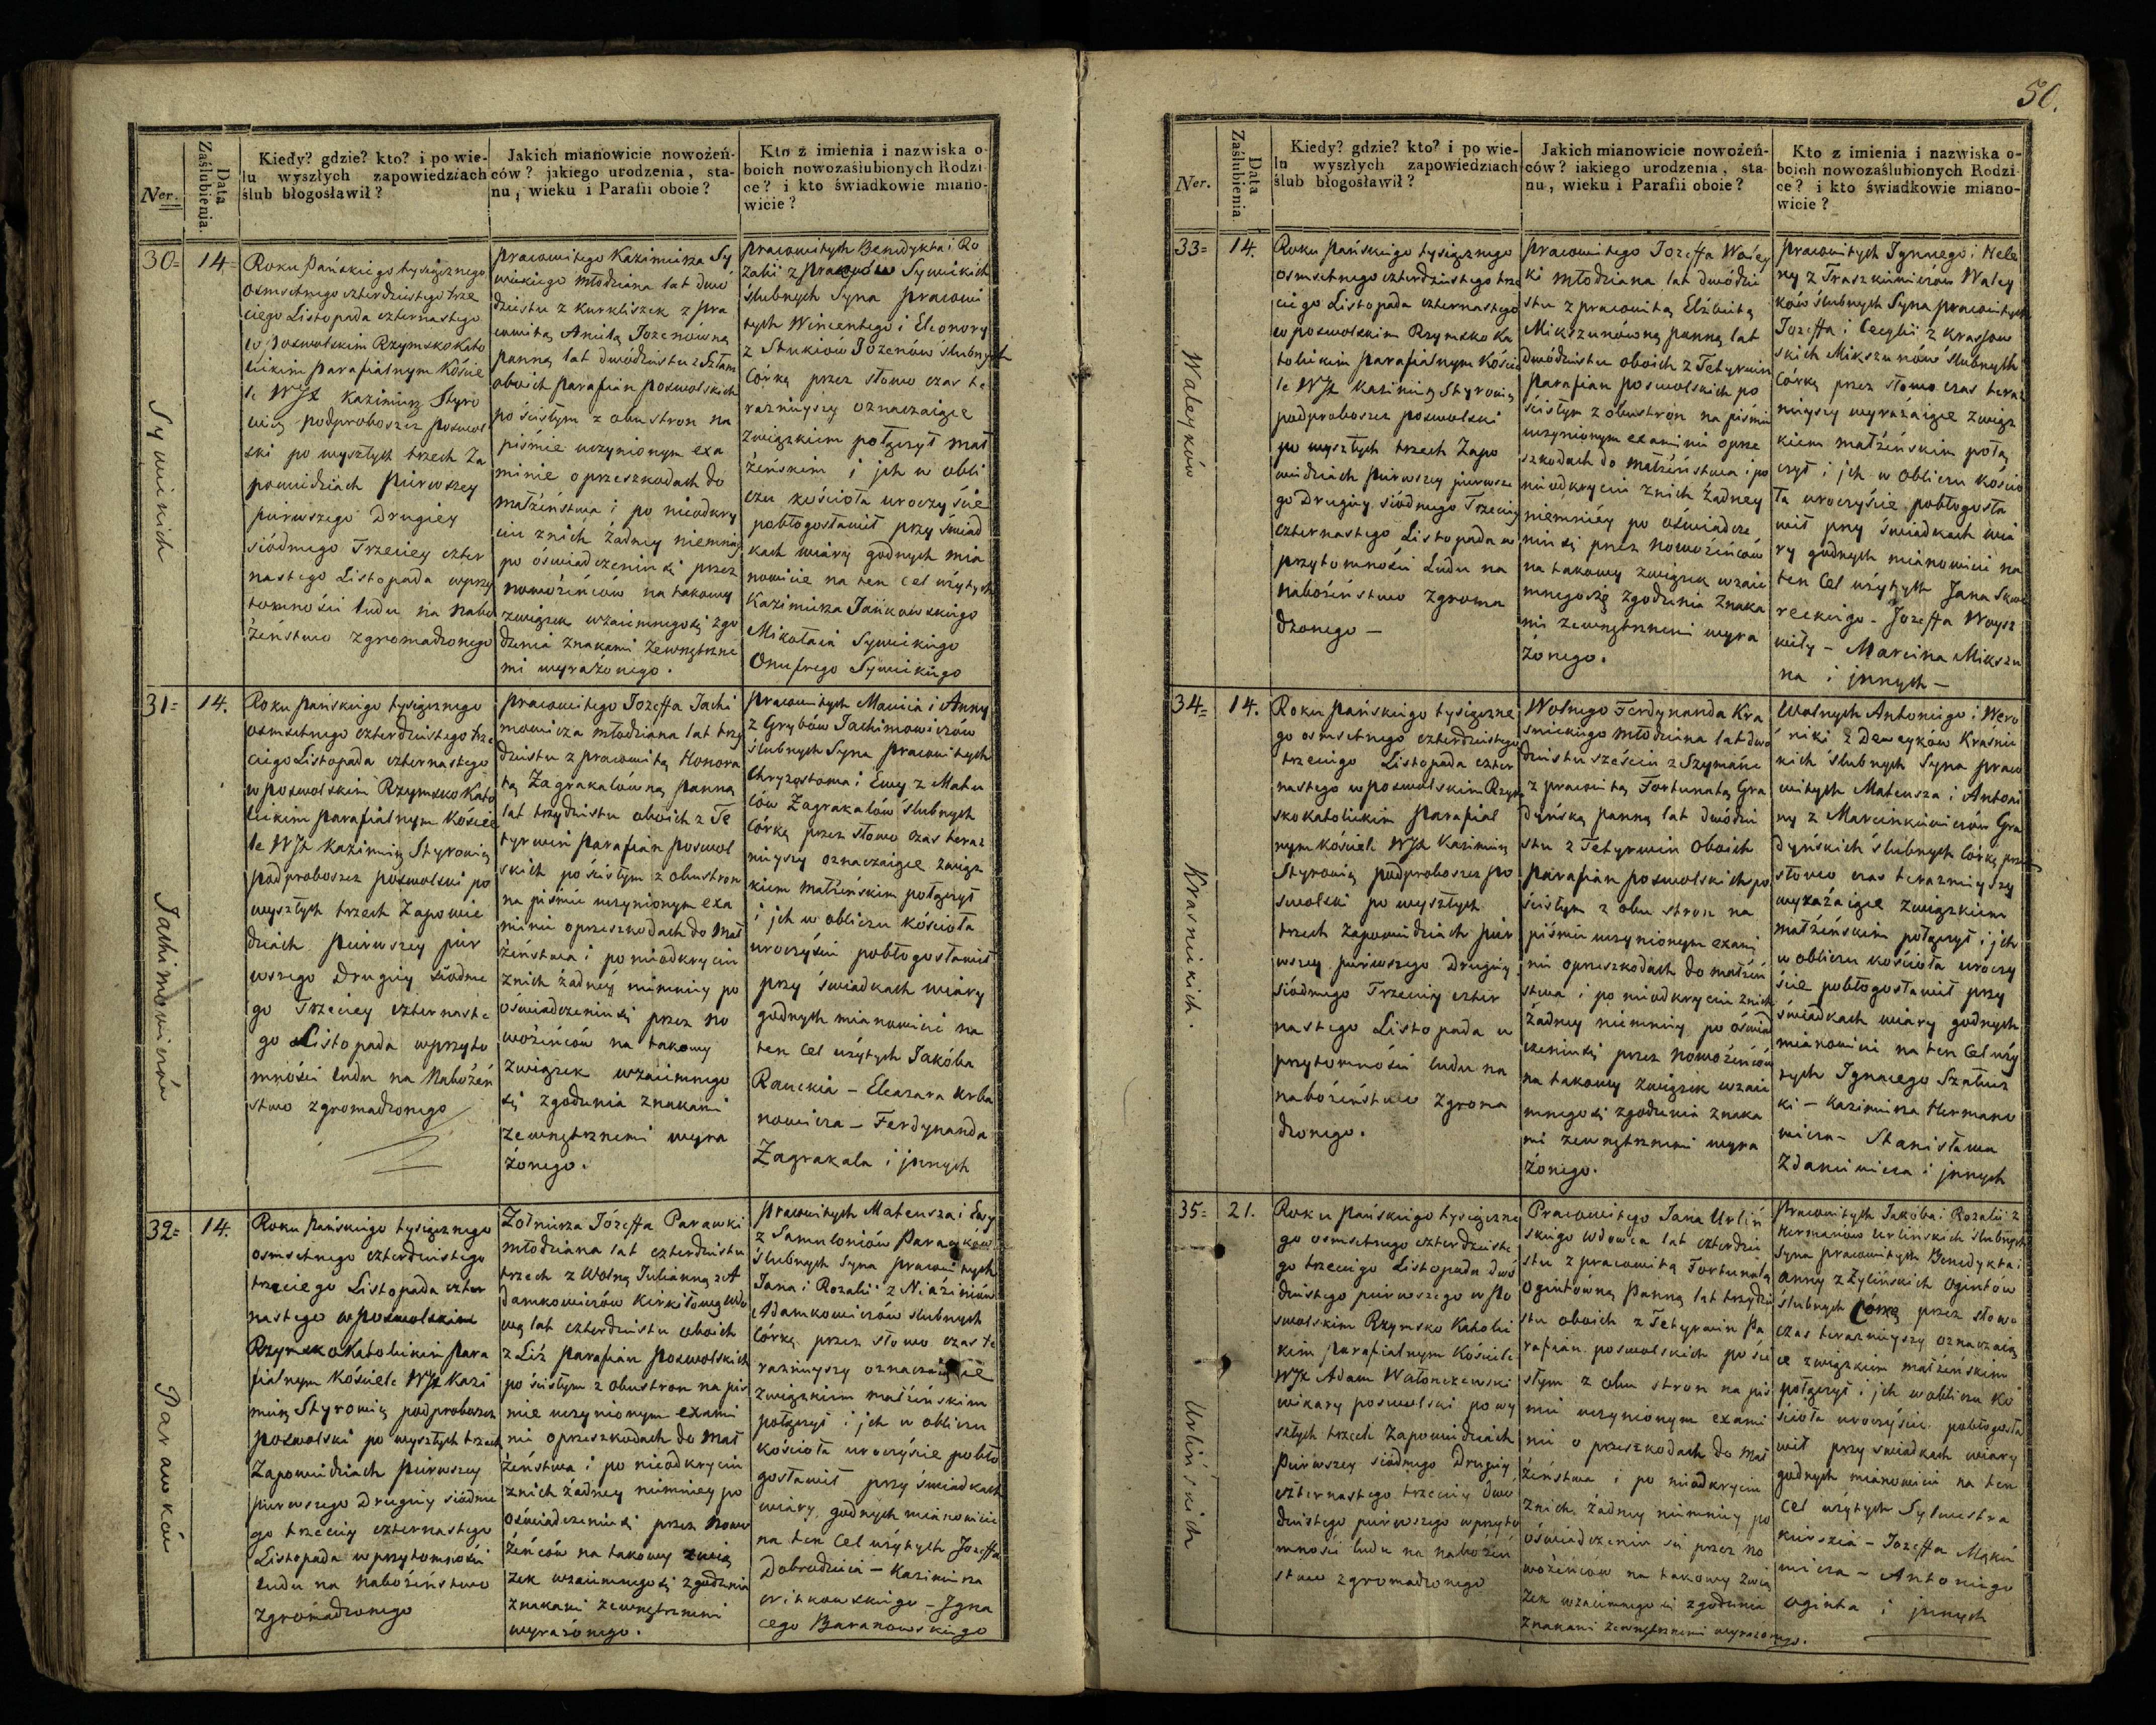 50.
Ner.
Data Zaślubienia.
Kiedy? gdzie? kto? i po wie-
lu wyszłych zapowiedziach
ślub błogosławił?
Jakich mianowicie nowożeń-
ców? jakiego urodzenia, sta-
nu, wieku i Parafii oboie?
Kto z imienia i nazwiska o-
boich nowozaślubionych Rodzi-
ce? i kto świadkowie miano-
wicie?
30=
14=
Sywickich
Roku Pańskiego tysiącznego
osmsetnego czterdziestego trze
ciego Listopada czternastego
w Poswolskim Rzymsko Kato
lickim parafialnym Koście
le WJX Kazimierz Styro
wicz podproboszcz poswol
ski po wyszłych trzech Za
powiedziach pierwszey
pierwszego Drugiey
siódmego Trzeciey czter
nastego Listopada w przy
tomności ludu na Nabo
żeństwo zgromadzonego
pracowitego Kazimierza Sy
wickiego młodziana lat dwó
dziestu z Kurkliszek z pra
cowitą Anielą Jozenówną
panną lat dwódziestu z
oboich parafian poswolskich
po ścisłym z obu stron na
piśmie uczynionym exa
minie o przeszkodach do
małżeństwa i po nieodkry
ciu z nich żadney niemniey
po oświadczeniu się przez
nowożeńców na takowy
związek wzaiemnego się zgo
dzenia znakami zewnętrzne
mi wyrażonego.
pracowitych Benedykta i Ro
zalii z Sywickich
ślubnych Syna pracowi
tych Wincentego i Eleonory
z Stukiów Jozenów ślubnych
Córkę przez słowo czas te
raznieyszy oznaczaiące
związkiem połączył mał
żeńskim i ich w obli
czu kościoła uroczyście
pobłogosławił przy świad
kach wiary godnych mia
nowicie na ten cel użytych
Kazimierza Jankowskiego
Mikołaia Sywickiego
Onufrego Sywickiego
31=
14.
Jachimowiczów
Roku Pańskiego tysiącznego
osmsetnego czterdziestego trze
ciego Listopada czternastego
w poswolskim Rzymsko Kato
lickim parafialnym Koście
le WJX Kazimierz Styrowicz
podproboszcz poswolski po
wyszłych trzech Zapowie
dziach pierwszey pier
wszego Drugiey siódme
go Trzeciey czternaste
go Listopada w przyto
mności ludu na Nabożeń
stwo zgromadzonego
pracowitego Jozeffa Jachi
mowicza młodziana lat trzy
dziestu z pracowitą Honora
tą Zagrakalówną panną
lat trzydziestu oboich z Te
tyrwin parafian poswol
skich po ścisłym z obustron
na piśmie uczynionym exa
minie o przeszkodach do mał
żeństwa i po nieodkryciu
z nich żadney niemniey po
oświadczeniu się przez no
wożeńców na takowy
związek wzaiemnego
się zgodzenia znakami
zewnętrznemi wyra
żonego.
pracowitych Macieia i Anny
z Grybów Jachimowiczów
ślubnych Syna pracowitych
Chryzostoma i Ewy z Matu
lów Zagrakalów ślubnych
Córkę przez słowo czas teraz
nieyszy oznaczaiące związ
kiem małżeńskim połączył
i ich w obliczu kościoła
uroczyście pobłogosławił
przy świadkach wiary
godnych mianowicie na
ten cel użytych Jakóba
Rauckia – Eleazara Urba
nowicza – Ferdynanda
Zagrakala i innych
32=
14.
Parawków
Roku Pańskiego tysiącznego
osmsetnego czterdziestego
trzeciego Listopada czter
nastego w poswolskim
Rzymsko Katolickim para
fialnym Kościele WJX Kazi
mierz Styrowicz podproboszcz
poswolski po wyszłych trzech
Zapowiedziach pierwszey
pierwszego Drugiey siódme
go trzeciey czternastego
Listopada w przytomności
ludu na Nabożeństwo
zgromadzonego
Żołnierza Józeffa Parawki
młodziana lat czterdziestu
trzech z Wolną Julianną z A
damkowiczów Kirkiłową wdo
wą lat czterdziestu oboich
z Liż parafian poswolskich
po ścisłym z obustron na piś
mie uczynionym exami
nie o przeszkodach do mał
żeństwa i po nieodkryciu
z nich żadney niemniey po
oświadczeniu się przez nowo
żeńców na takowy zwią
zek wzaiemnego się zgodzenia
znakami zewnętrznemi
wyrażonego.
pracowitych Mateusza i Ewy
z Samuloniów Parawków
ślubnych Syna pracowitych
Jana i Rozalii z Nizieniów
Adamkowiczów ślubnych
Córkę przez słowo czas te
raznieyszy oznaczaiące
związkiem małżeńskim
połączył i ich w obliczu
kościoła uroczyście pobło
gosławił przy świadkach
wiary godnych mianowicie
na ten cel użytych Jozeffa
Dobrodzieia – Kazimierza
Witkowskiego – Igna
cego Baranowskiego
Ner.
Data Zaślubienia.
Kiedy? gdzie? kto? i po wie-
lu wyszłych zapowiedziach
ślub błogosławił?
Jakich mianowicie nowożeń-
ców? iakiego urodzenia, sta-
nu, wieku i Parafii oboie?
Kto z imienia i nazwiska o-
boich nowozaślubionych Rodzi-
ce? i kto świadkowie miano-
wicie?
33=
14.
Waleyków
Roku Pańskiego tysiącznego
osmsetnego czterdziestego trze
ciego Listopada czternastego
w poswolskim Rzymsko Ka
tolickim parafialnym Koście
le WJX Kazimierz Styrowicz
podproboszcz poswolski
po wyszłych trzech Zapo
wiedziach pierwszey pierwsze
go Drugiey siódmego Trzeciey
czternastego Listopada w
przytomności Ludu na
nabożeństwo zgroma
dzonego –
pracowitego Jozeffa Waley
ki młodziana lat dwódzie
stu z pracowitą Elżbietą
Mikszunówną panną lat
dwódziestu oboich z Tetyrwin
parafian poswolskich po
ścisłym z obustron na piśmie
uczynionym examinie o prze
szkodach do małżeństwa i po
nieodkryciu z nich żadney
niemniey po oświadcze
niu się przez Nowożeńców
na takowy związek wzaie
mnego się zgodzenia znaka
mi zewnętrznemi wyra
żonego.
pracowitych Ignacego i Hele
ny z Traszkiewiczów Waley
ków ślubnych Syna pracowitych
Jozeffa i Cecylii z Krassow
skich Mikszunów ślubnych
Córkę przez słowo czas teraz
nieyszy wyrażaiące związ
kiem małżeńskim połą
czył i ich w obliczu kościo
ła uroczyście pobłogosła
wił przy świadkach wia
ry godnych mianowicie na
ten cel użytych Jana Skwo
reckiego – Jozeffa Woysz
wiły – Marcina Mikszu
na i innych –
34=
14.
Krasnickich.
Roku Pańskiego tysiączne
go osmsetnego czterdziestego
trzeciego Listopada czter
nastego w poswolskim Rzym
sko katolickim parafial
nym kościele WJX Kazimierz
Styrowicz podproboszcz po
swolski po wyszłych
trzech zapowiedziach pier
wszey pierwszego Drugiey
siódmego Trzeciey czter
nastego Listopada w
przytomności ludu na
nabożeństwo zgroma
dzonego.
Wolnego Ferdynanda Kra
snickiego młodziana lat dwó
dziestu sześciu z Szymańc
z pracowitą Fortunatą Gra
dyńską panną lat dwódzie
stu z Tetyrwin oboich
parafian poswolskich po
ścisłym z obu stron na
piśmie uczynionym exami
nie o przeszkodach do małżeń
stwa i po nieodkryciu z nich
żadney niemniey po oświad
czeniu się przez nowożeńców
na takowy związek wzaie
mnego się zgodzenia znaka
mi zewnętrznemi wyra
żonego.
Wolnych Antoniego i Wero
niki z Deweyków Krasnic
kich ślubnych Syna praco
witych Mateusza i Antoni
ny z Marcinkiewiczów Gra
dyńskich ślubnych Córkę przez
słowo czas teraznieyszy
wyrażaiące związkiem
małżeńskim połączył i ich
w obliczu kościoła uroczy
ście pobłogosławił przy
świadkach wiary godnych
mianowicie na ten cel uży
tych Ignacego Szatus
ki – Kazimierza Hermano
wicza – Stanisława
Zdaniewicza i innych
35=
21.
Urlińskich
Roku Pańskiego tysiączne
go osmsetnego czterdzieste
go trzeciego Listopada dwó
dziestego pierwszego w po
swolskim Rzymsko Katolic
kim parafialnym Kościele
WJX Adam Wałonczewski
wikary poswolski po wy
szłych trzech Zapowiedziach
pierwszey siódmego Drugiey
czternastego trzeciey dwó
dziestego pierwszego w przyto
mności ludu na nabożeń
stwo zgromadzonego
Pracowitego Jana Urliń
skiego Wdowca lat czterdzie
stu z pracowitą Fortunatą
Ogintówną Panną lat trzydzie
stu oboich z Tetyrwin Pa
rafian poswolskich po ści
słym z obu stron na piś
mie uczynionym exami
nie o przeszkodach do mał
żeństwa i po nieodkryciu
z nich żadney niemniey po
oświadczeniu się przez no
wożeńców na takowy zwią
zek wzaiemnego się zgodzenia
znakami zewnętrznemi wyrażonego.
Pracowitych Jakóba i Rozalii z
Hermanów Urlińskich ślubnych
Syna pracowitych Benedykta i
Anny z Żylińskich Ogintów
ślubnych Córkę przez słowo
czas teraznieyszy oznaczaią
ce związkiem małżeńskim
połączył i ich w obliczu ko
ścioła uroczyście pobłogosła
wił przy świadkach wiary
godnych mianowicie na ten
cel użytych Sylwestra
Kirszia – Jozeffa Mąkie
wicza – Antoniego
Oginta i innych